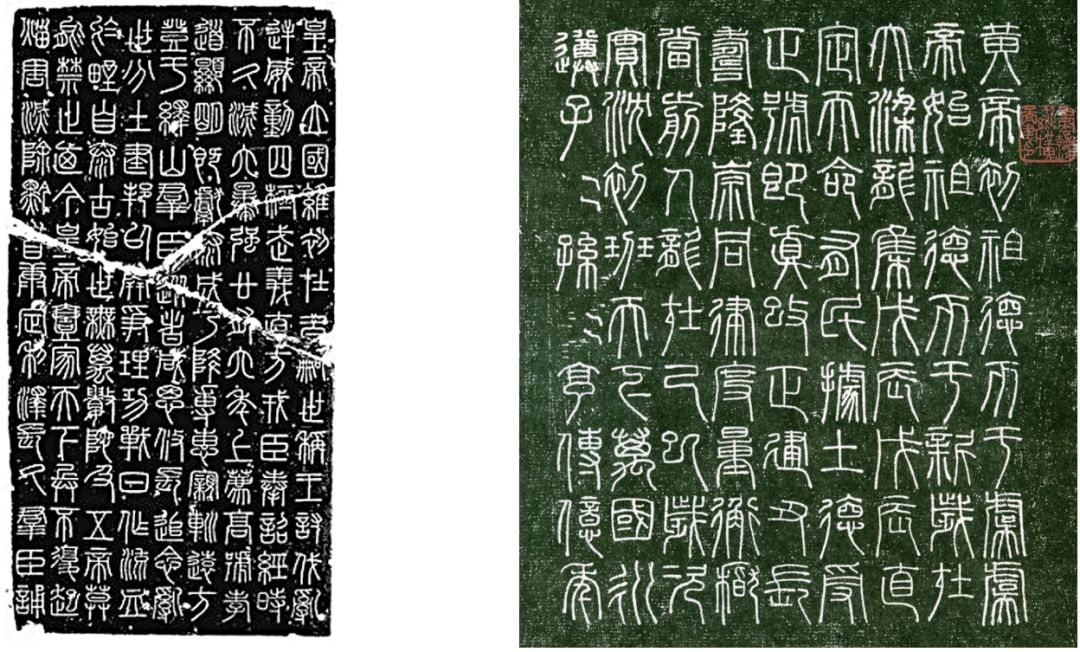 皇帝立國維初在昔嗣世稱王討伐亂
逆威動四極武義直方戎臣奉詔經時
不久滅六暴強廿有六年上薦高號孝
道顯明既獻泰成乃降專惠親巡遠方
登于繹山群臣從者咸思攸長追念亂
世分土建邦以開爭理功戰日作流血
於野自泰古始世無萬數陀及五帝莫
能禁止乃今皇帝壹家天下兵不復起
災害滅除黔首康定利澤長久群臣誦
黃帝初祖德帀于虞虞
帝始祖德帀于新歲在
大梁龍集戊辰戊辰直
定天命有民據土德受
正號即真改正建丑長
壽隆崇同律度量衡稽
當前人龍在己巳歲次
實沈初班天下萬國永
遵子子孫孫享傳億年